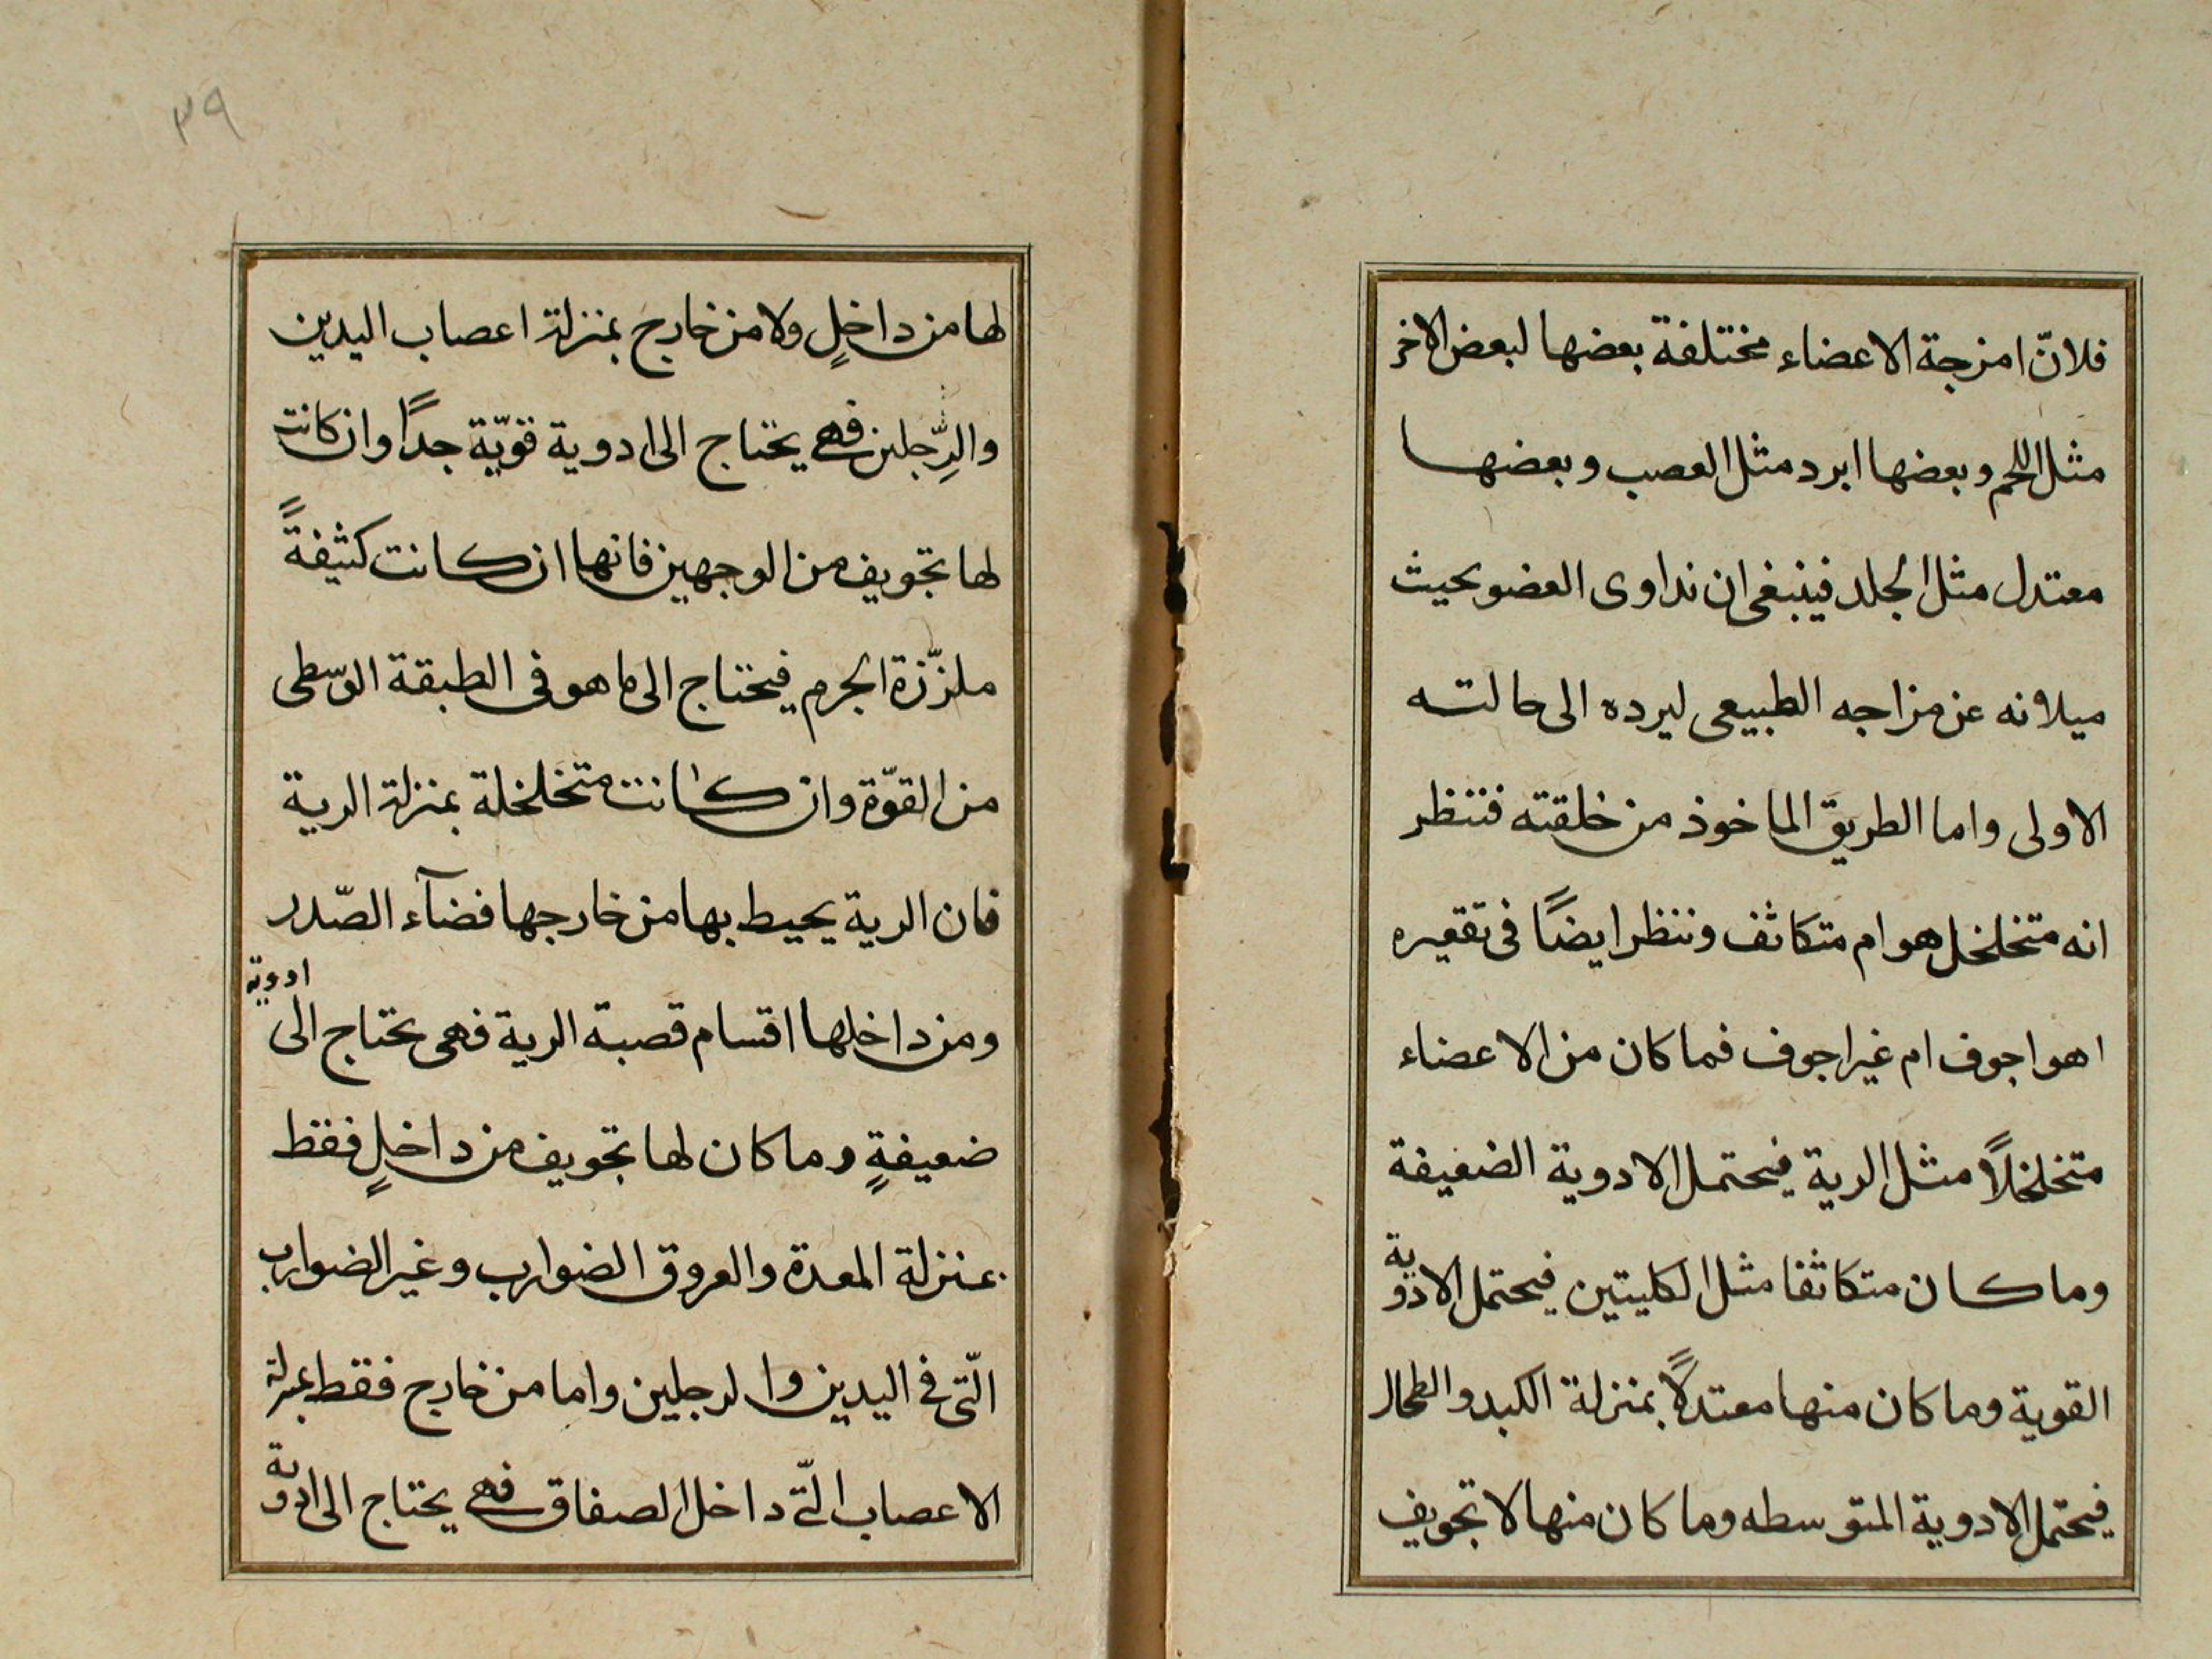 فلانّ امزجة الاعضاء مختلفة بعضها لبعض الاخر
مثل اللحم وبعضها ابرد مثل العصب وبعضها
معتدل مثل الجلد فينبغى ان نداوى العضو بحيث
ميلانه عن مزاجه الطبيعى ليرده الى حالته
الاولى واما الطريق الماخوذ من خلقته فننظر
انه متخلخل هو ام متكاثف وننظر ايضاً فى تقعيره
اهو اجوف ام غير اجوف فما كان من الاعضاء
متخلخلاً مثل الرية فيحتمل الادوية الضعيفة
وما كان متكاثفا مثل الكليتين فيحتمل الادوية
القوية وما كان منها معتدلاً بمنزلة الكبد والطحال
فيحتمل الادوية المتوسطه وما كان منها لا تجويف
٣٩
لها من داخلٍ ولا من خارج بمنزلة اعصاب اليدين
والرِّجلين فهى يحتاج الى ادوية قويّة جداً وان كانت
لها تجويف من الوجهين فانها ان كانت كثيفةً
ملزّزة الجرم فيحتاج الى ما هو فى الطبقة الوسطى
من القوّة وان كانت متخلخلة بمنزلة الرية
فان الرية يحيط بها من خارجها فضآء الصّدر
ومن داخلها اقسام قصبة الرية فهى يحتاج الى ادوية
ضعيفةٍ وما كان لها تجويف من داخلٍ فقط
بمنزلة المعدة والعروق الضوارب وغير الضوارب
الّتى فى اليدين والرجلين واما من خارج فقط بمنزلة
الاعصاب الّتى داخل الصفاق فهى يحتاج الى ادوية